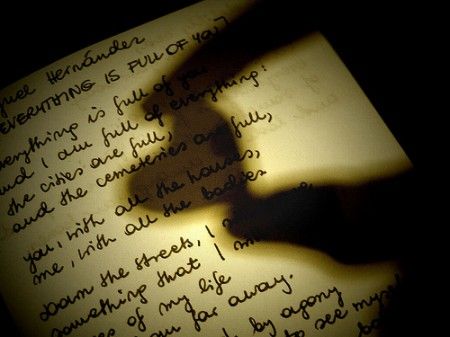 guel Hernández
EVERYTHING IS FULL OF YOU]
verything is full of you
and I am full of everything:
the cities are full,
and the cemeteries are full,
you, with all the houses,
me, with all the bodies
Down the streets, I
something that I
of my life
far away.
by agony
to see